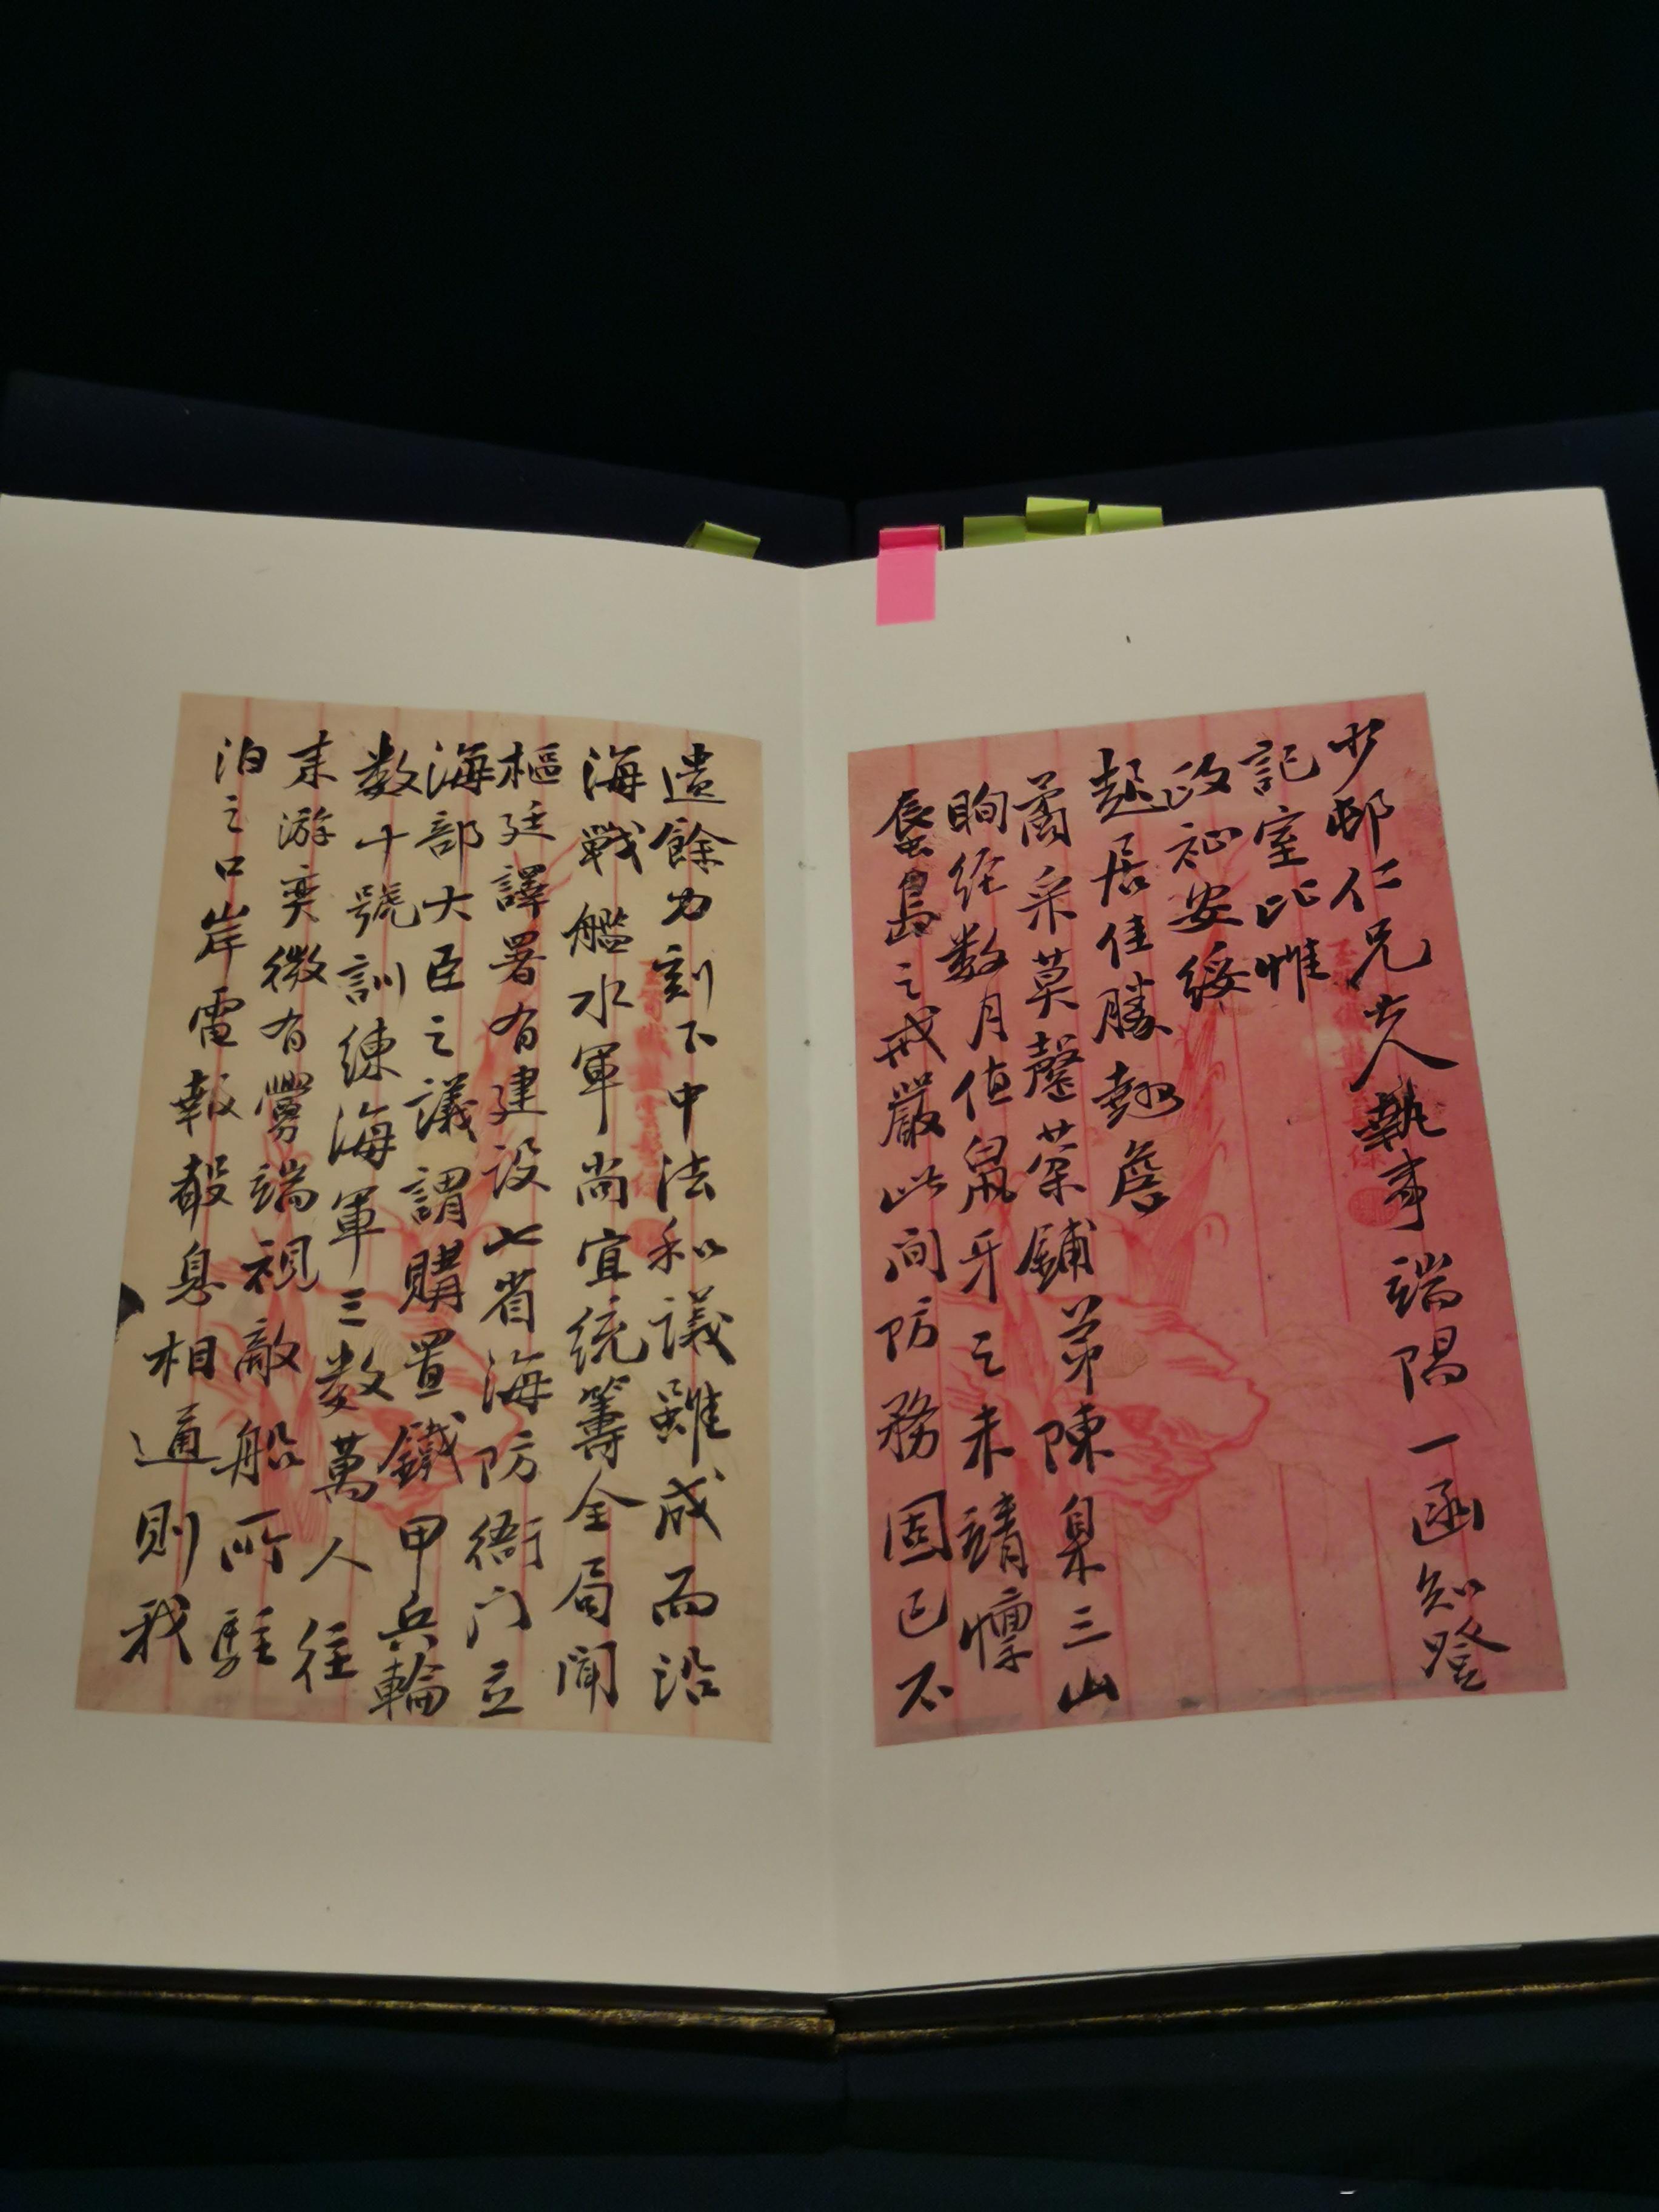 少邨仁兄大人執事端陽一函知登
記室比惟
政祉安綏
起居佳勝翹詹
喬采莫罄葵鋪弟陳臬三山
眴經數月值鼠牙之未靖懍
蜃島之戒嚴此间防務固已不
遺餘力刻下中法和議雖成而沿
海戰艦水軍尚宜統籌全局聞
樞廷譯署有建设七省海防衙门立
海部大臣之議謂購置鐵甲兵輪
数十號訓練海軍三数萬人往
来游奕微有釁端視敵船所駐
泊之口岸電報聲息相通則我